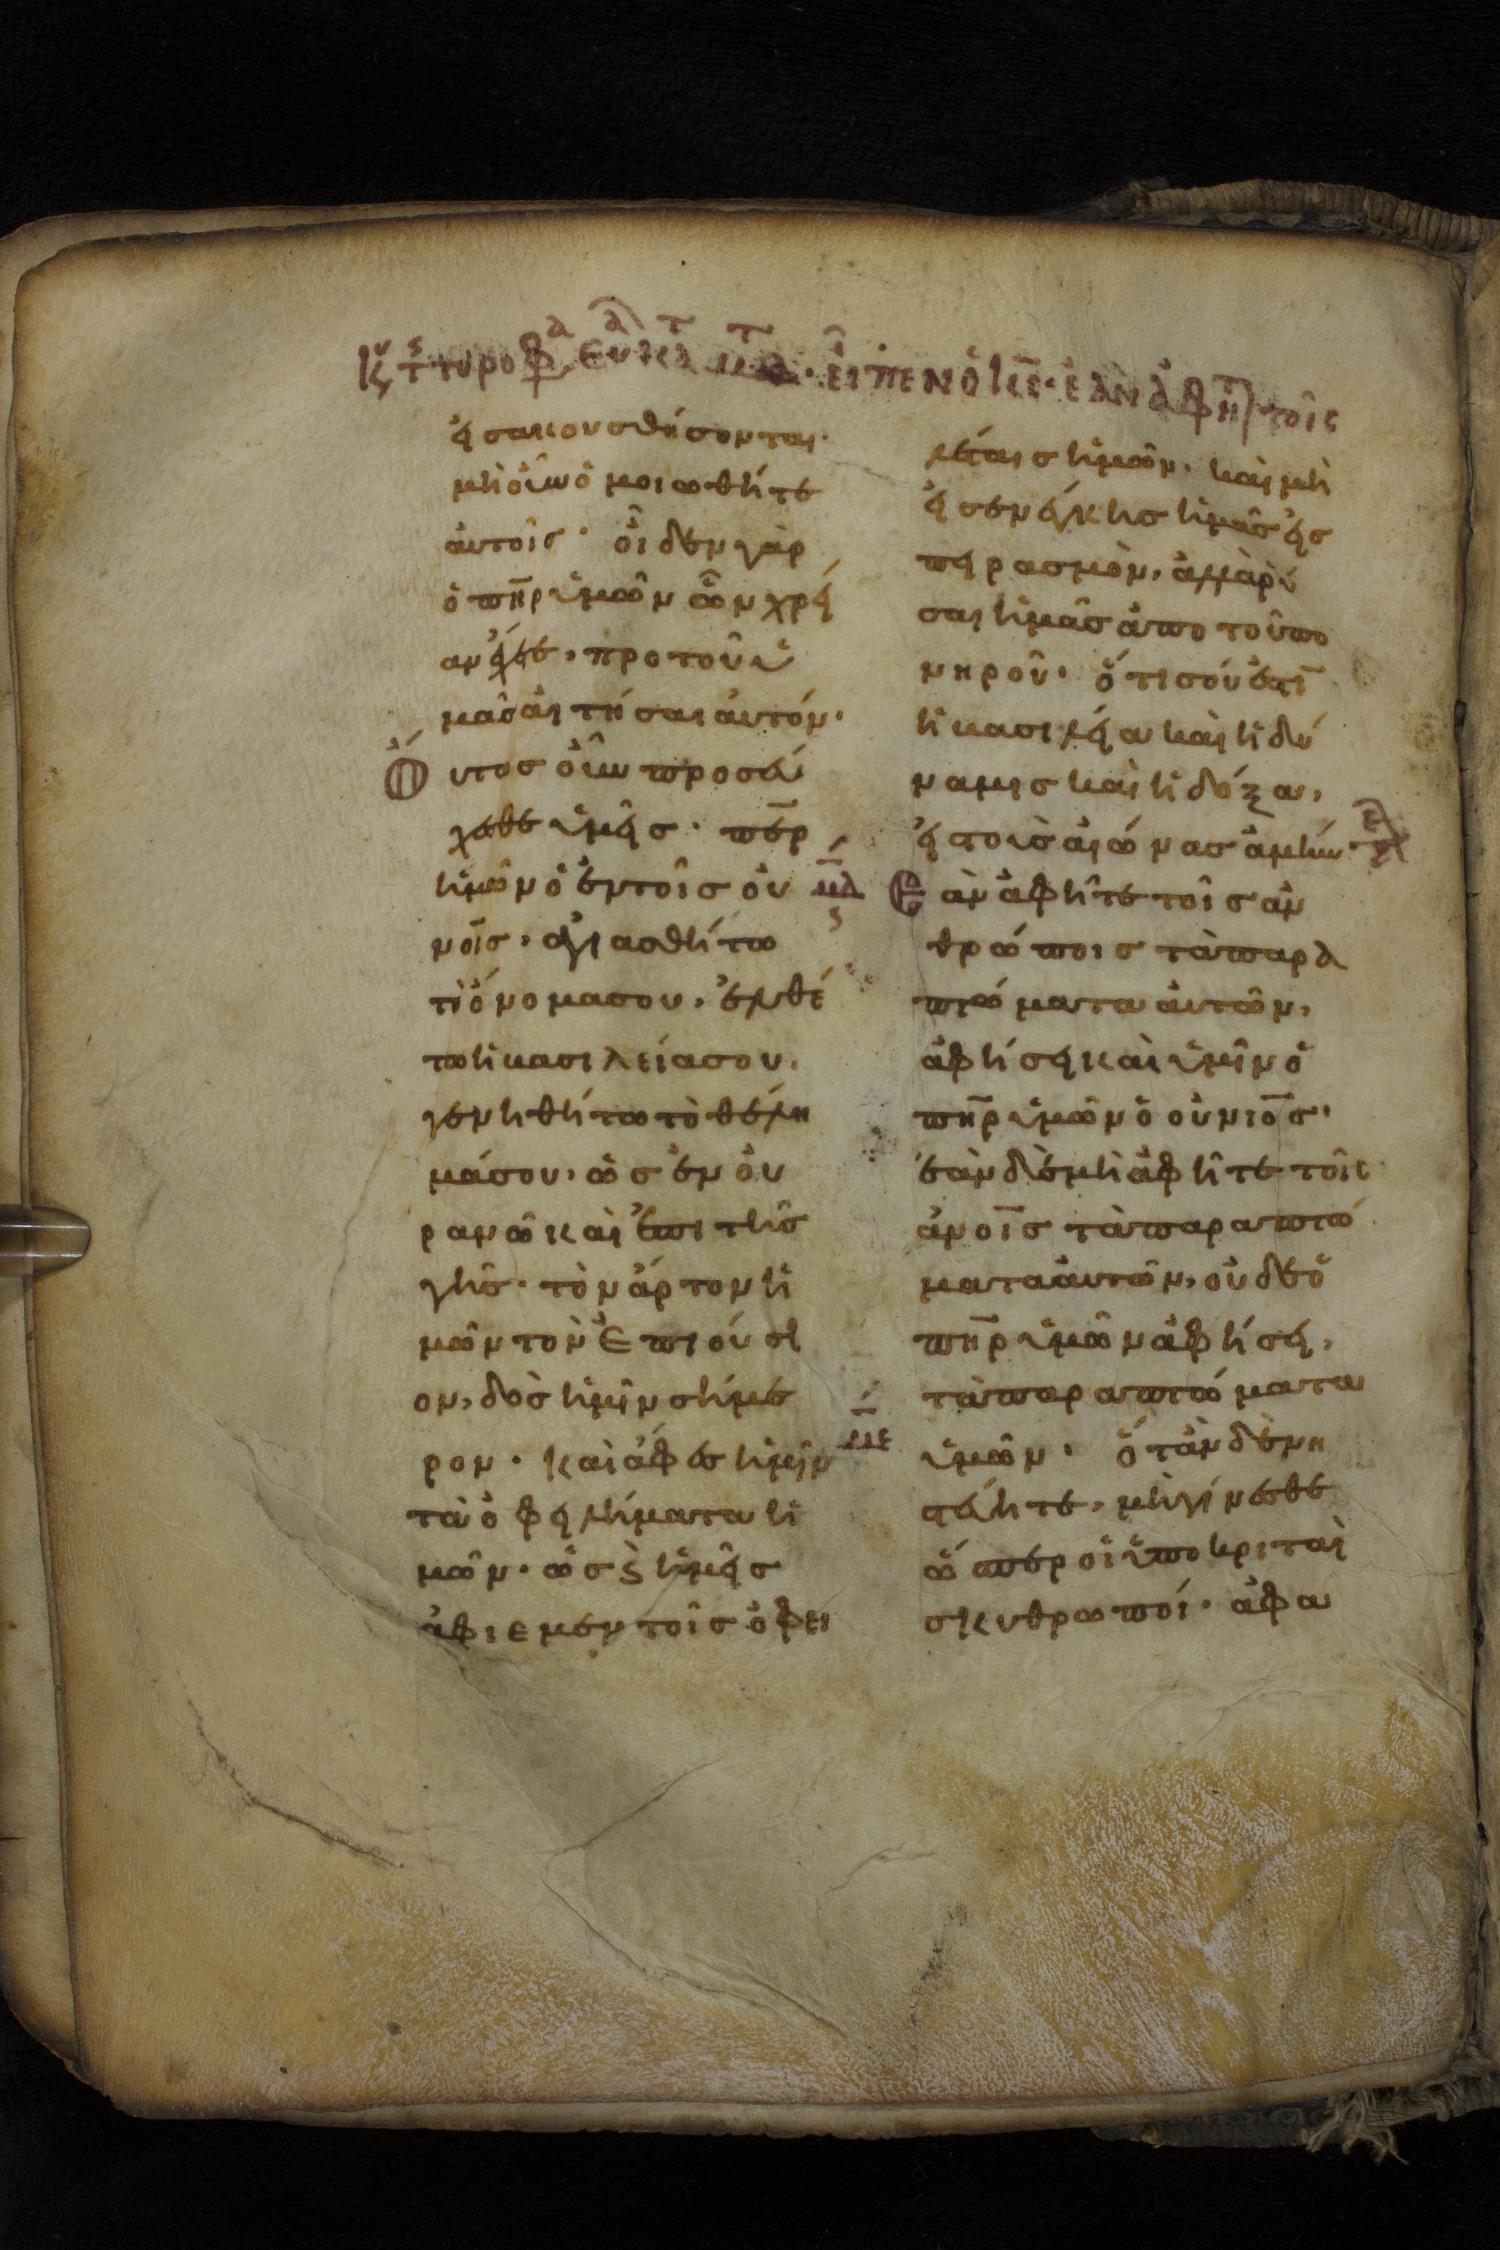 Κυ τ τυροφ ευα κτ μτ · εἶπεν ὁ κς · ἐὰν ἀφῆτ τοῖς
εἰσακουσθήσονται·
μὴ οὖν ὁμοιωθήτε
αὐτοῖς · οἶδεν γὰρ
ὁ πηρ ὑμῶν ὧν χρεί
αν ἔχετε, προ τοῦ ὑ
μᾶς αἰτήσαι αὐτόν·
Ὅυτος οὖν προσεύ
χεσθε ὑμεῖς · περ
ἡμῶν ὁ ἐν τοῖς οὐ
νοῖς, ἁγιασθήτω
τὸ ὄνομα σου, ἐλθέ
τω ἡ βασιλεία σου.
γενηθήτω τὸ θέλη
μά σου, ὡς ἐν οὐ
ρανῶ καὶ ἐπι τῆς
γῆς · τὸν ἄρτον ἡ
μῶν τὸν ἐπιούσι
ον, δὸς ἡμῖν σήμε
ρον · καὶ ἄφες ἡμῖν
τὰ ὀφειλήματα ἡ
μῶν · ὡς ϗ ἡμεῖς
ἀφιεμεν τοῖς ὀφει
λέταις ἡμῶν · καὶ μὴ
εἰσενείκης ἡμᾶς εἰς
πειρασμὸν, ἀλλὰ ρύ
σαι ἡμᾶς ἀπο τοῦ πο
νηροῦ · ὅτι σού ἐστὶ
ἡ βασιλεία καὶ ἡ δύ
ναμις καὶ ἡ δόξα,
εἰς τοὺς αἰώνας ἀμήν
μδ Ἐὰν ἀφῆτε τοῖς ἀν
θρώποις τὰ παρα
πτώματα αὐτῶν,
ἀφήσει καὶ ὑμῖν ὁ
πηρ ὑμῶν ὁ οὐνιος·
ἐὰν δὲ μὴ ἀφῆτε τοῖς
ἀνοῖς τὰ παραπτώ
ματα αὐτῶν, οὐδε ὁ
πηρ ὑμῶν ἀφήσει,
τὰ παραπτώματα
με ὑμῶν · ὅταν δὲ νη
στεύητε, μὴ γίνεσθε
ὥσπερ οἱ ὑποκριταὶ
σκυθρωποί · ἀφα